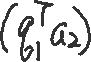 (q₁ᵀa₂)